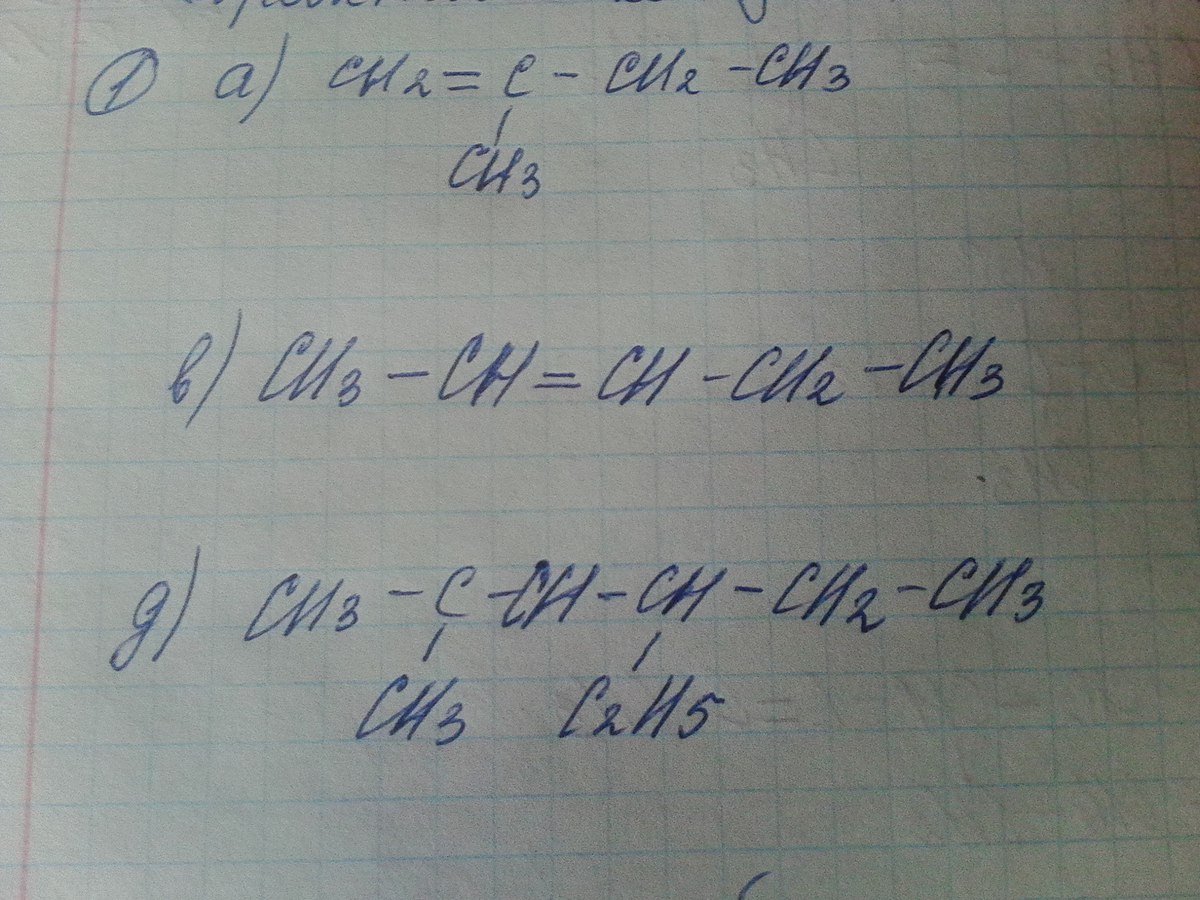 ① а) CH2 = C - CH2 - CH3
CH3
в) CH3 - CH = CH - CH2 - CH3
д) CH3 - C - CH - CH - CH2 - CH3
CH3 C2H5